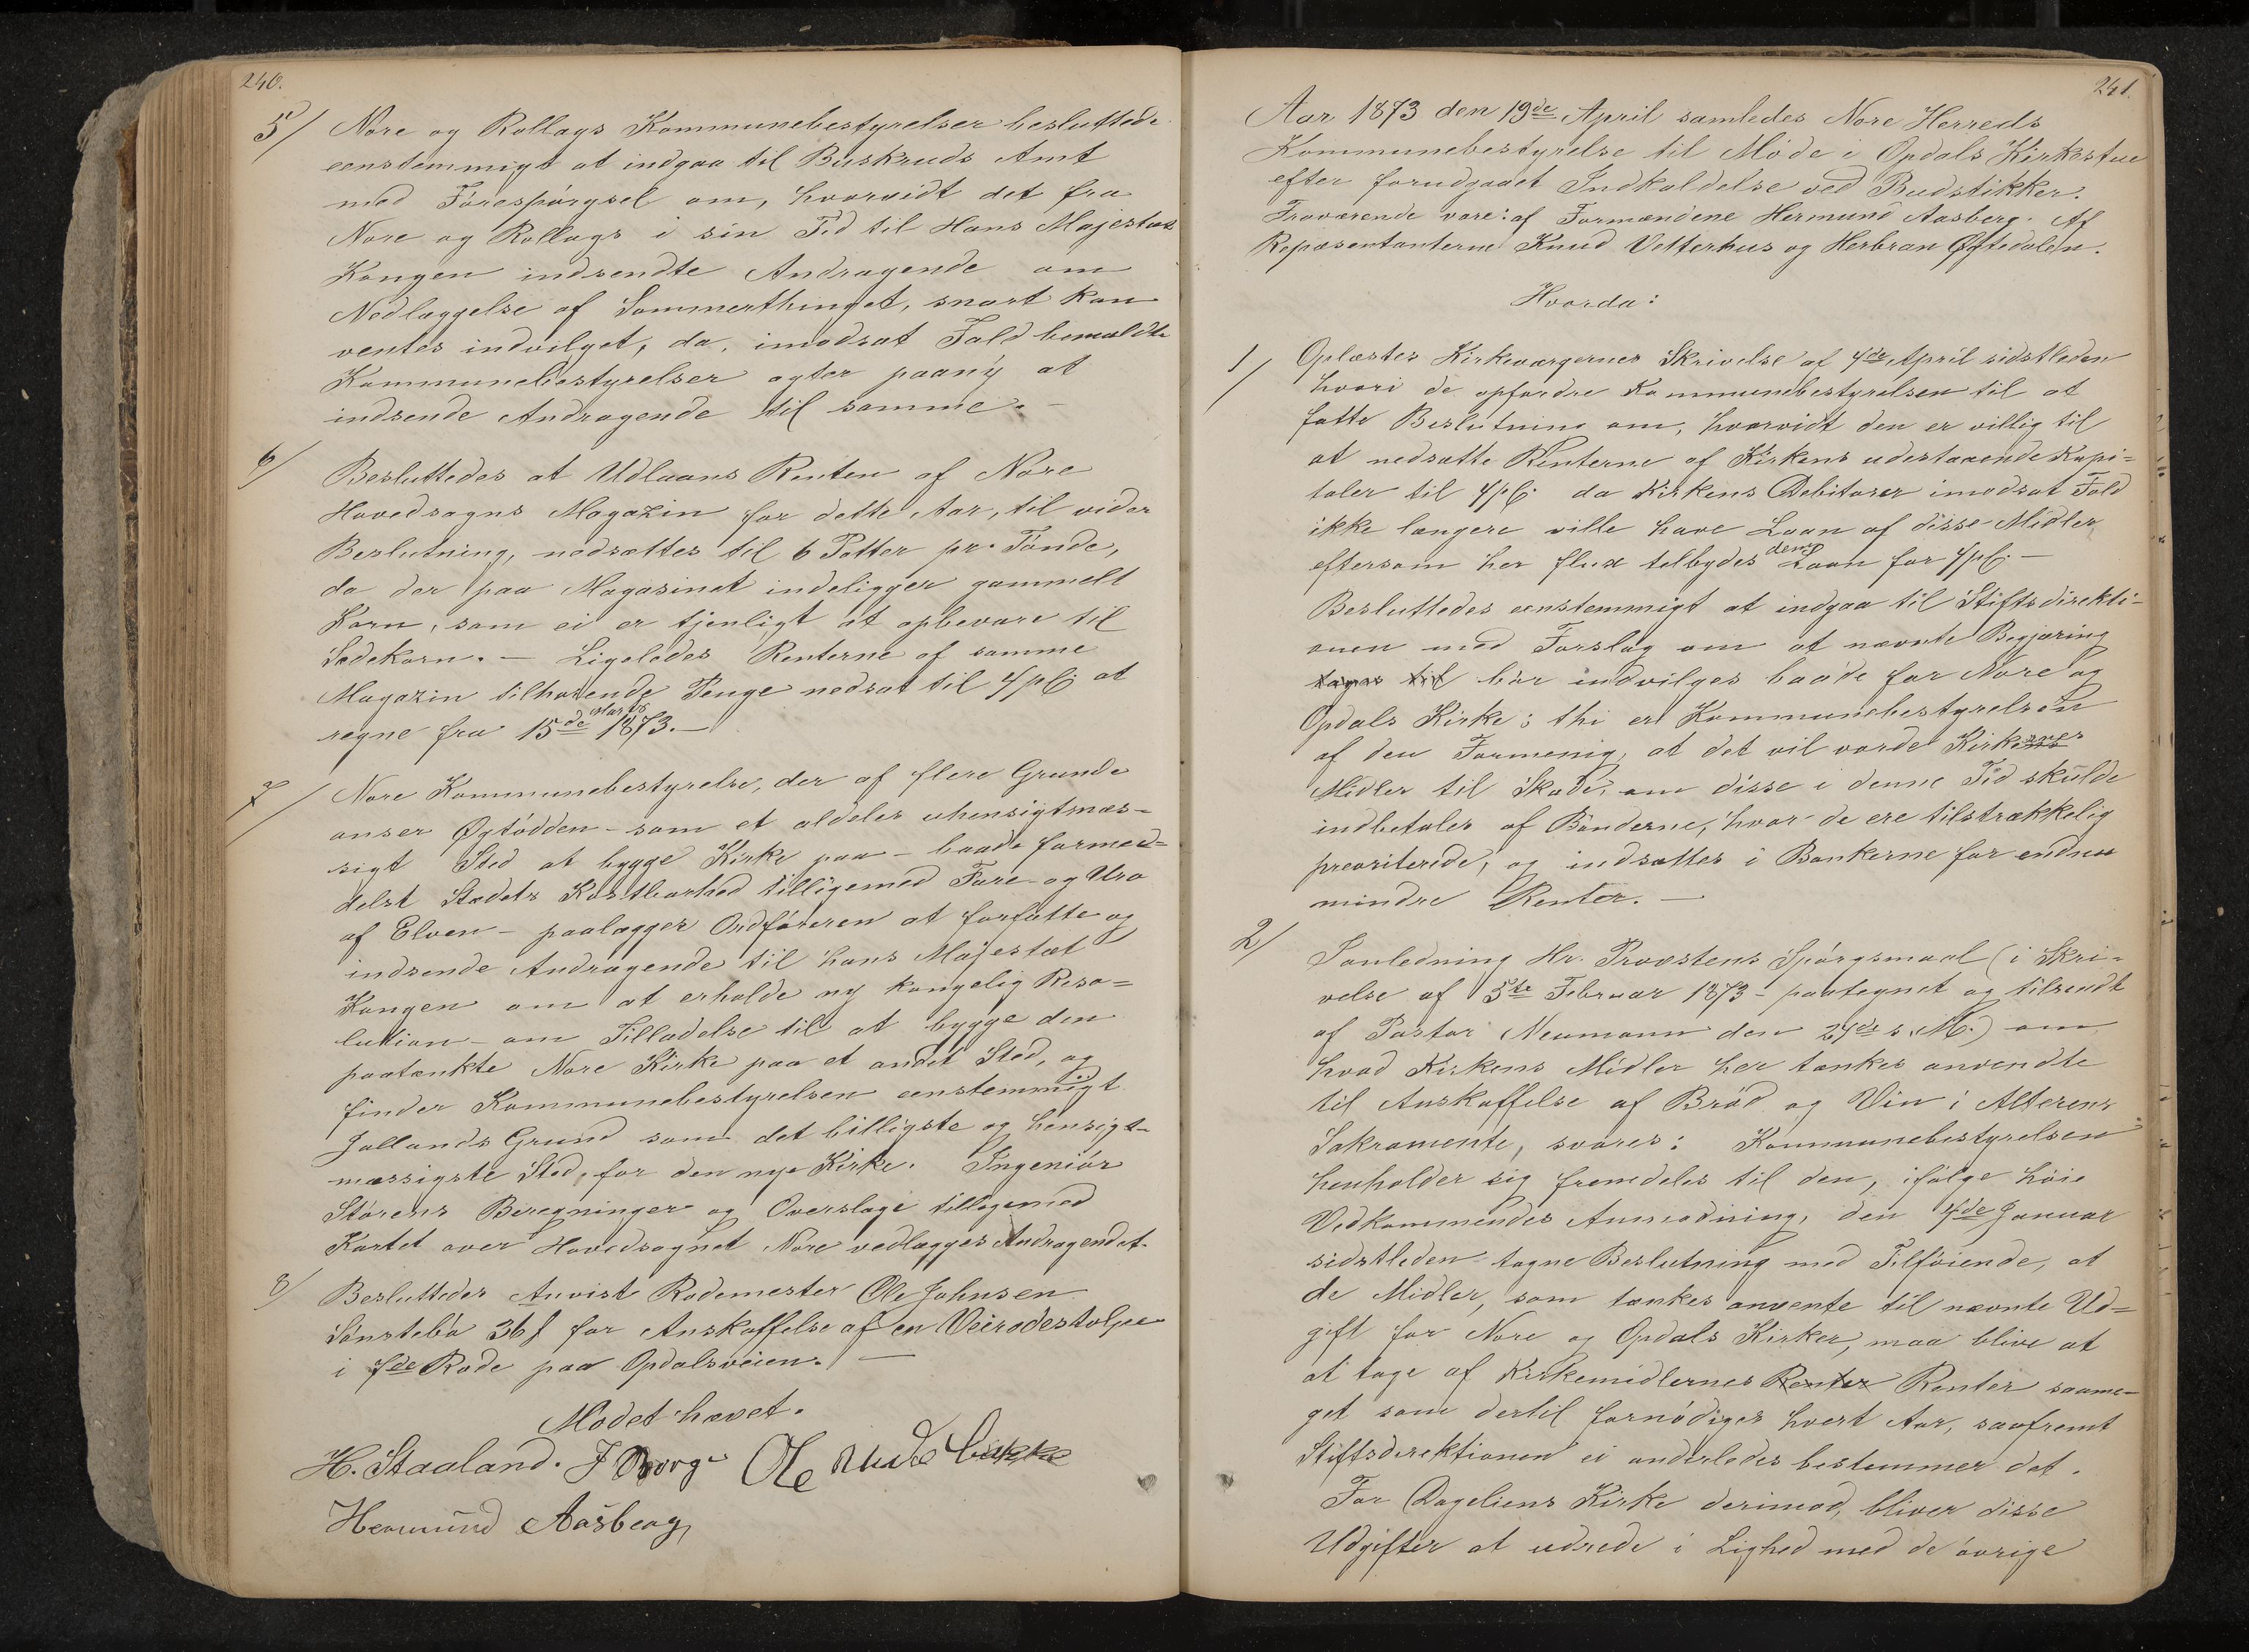 240.
5/ Nore og Rollags Kommunebestyrelser besluttede
eenstemmigt at indgaa til Buskruds Amt
med Förespörgsel om, hvorvidt det fra
Nore og Rollags i sin Tid til Hans Majestæt
Kongen indsendte Andragende om
Nedlæggelse af Sommerthinget, snart kan
ventes indvilget, da, imodsat Fald bemeldte
Kommunebestyrelser agter paany at
indsende Andragende til samme. –
6/ Besluttedes at Udlaans Renten af Nore
Hovedsogns Magazin for dette Aar, til vider
Beslutning, nedsættes til 6 Potter pr. Tönde,
da der paa Magasinet indeligger gammelt
Korn, som ei er tjenligt at opbevare til
Sædekorn. – Ligeledes Renterne af samme
Magazin tilhørende Penge nedsat til 4 pCt. at
regne fra 15de Marts 1873. –
7/ Nore Kommunebestyrelse, der af flere Grunde
anser Øgtödden – som et aldeles uhensigtmæs-
sigt Sted at bygge Kirke paa – baade formed-
delst Stedets Kostbarhed tilligemed Fare og Uro
af Elven – paalægger Ordföreren at forfatte og
indsende Andragende til hans Majestæt
Kongen om at erholde ny kongelig Reso=
lution – om Tilladelse til at bygge den
paatænkte Nore Kirke paa et andet Sted, og
finder Kommunebestyrelsen eenstemmigt
Jallands Grund som det billigste og hensigt-
mæssigste Sted, for den nye Kirke. Ingeniör
Störens Beregninger og Overslage tilligemed
Kartet over Hovedsognet Nore vedlægges Andragendet.
8/ Besluttedes Anvist Rodemester Ole Johnsen
Sönstebö 36 ſ for Anskaffelse af en Veirodestolpe
i 7de Rode paa Opdalsveien. –
Mödet hævet.
H. Staaland. J Borge Ole
Hermund Aasberg
241.
Aar 1873 den 19de April samledes Nore Herreds
Kommunebestyrelse til Möde i Opdals Kirkestue
efter forudgaaet Indkaldelse ved Budstikker.
Fraværende vare: af Formændene Hermund Aasberg. Af
Repæsentanterne Knud Vetterhus og Herbran Øytedalen.
Hvorda:
1/ Oplæstes Kirkeværgernes Skrivelse af 4de April sidstleden
hvori de opfordre Kommunebestyrelsen til at
fatte Beslutning om, hvorvidt den er villig til
at nedsætte Renterne af Kirkens udestaaende Kapi=
taler til 4 pCt. da Kirkens Debitorer imodsat Fald
ikke længere ville have Laan af disse Midler,
eftersom her flux tilbydes dem Laan for 4 pCt. –
Besluttedes eenstemmigt at indgaa til Stiftsdirekti-
onen med Forslag om at nævnte Begjæring
tages til bör indvilges baade for Nore og
Opdals Kirke; thi er Kommunebestyrelsen
af den Formenig, at det vil vorde Kirkernes
Midler til Skade, om disse i denne Tid skulde
indbetales af Bönderne, hvor de ere tilstrækkelig
preoriterede, og indsættes i Bankerne for endnu
mindre Renter. –
2/ Ianledning Hr. Provstens Spörgsmaal (i Skri-
velse af 5te Februar 1873 – paategnet og tilsendt
af Pastor Neumann den 24de s. M.) om
hvad Kirkens Midler her tænkes anvendte
til Anskaffelse af Bröd og Vin i Alterens
Sakramente, svares: Kommunebestyrelsen
henholder sig fremdeles til den, ifölge höie
Vedkommendes Anmodning, den 4de Januar
sidstleden tagne Beslutning med Tilföiende, at
de Midler, som tænkes anvente til nævnte Ud=
gift for Nore og Opdals Kirker, maa blive at
at tage af Kirkemidlernes Renter Renter saame-
get som dertil fornödiges hvert Aar, saafremt
Stiftsdirektionen ei anderledes bestemmer det.
For Dageliens Kirke derimod, bliver disse
Udgifter at udrede i Lighed med de övrige